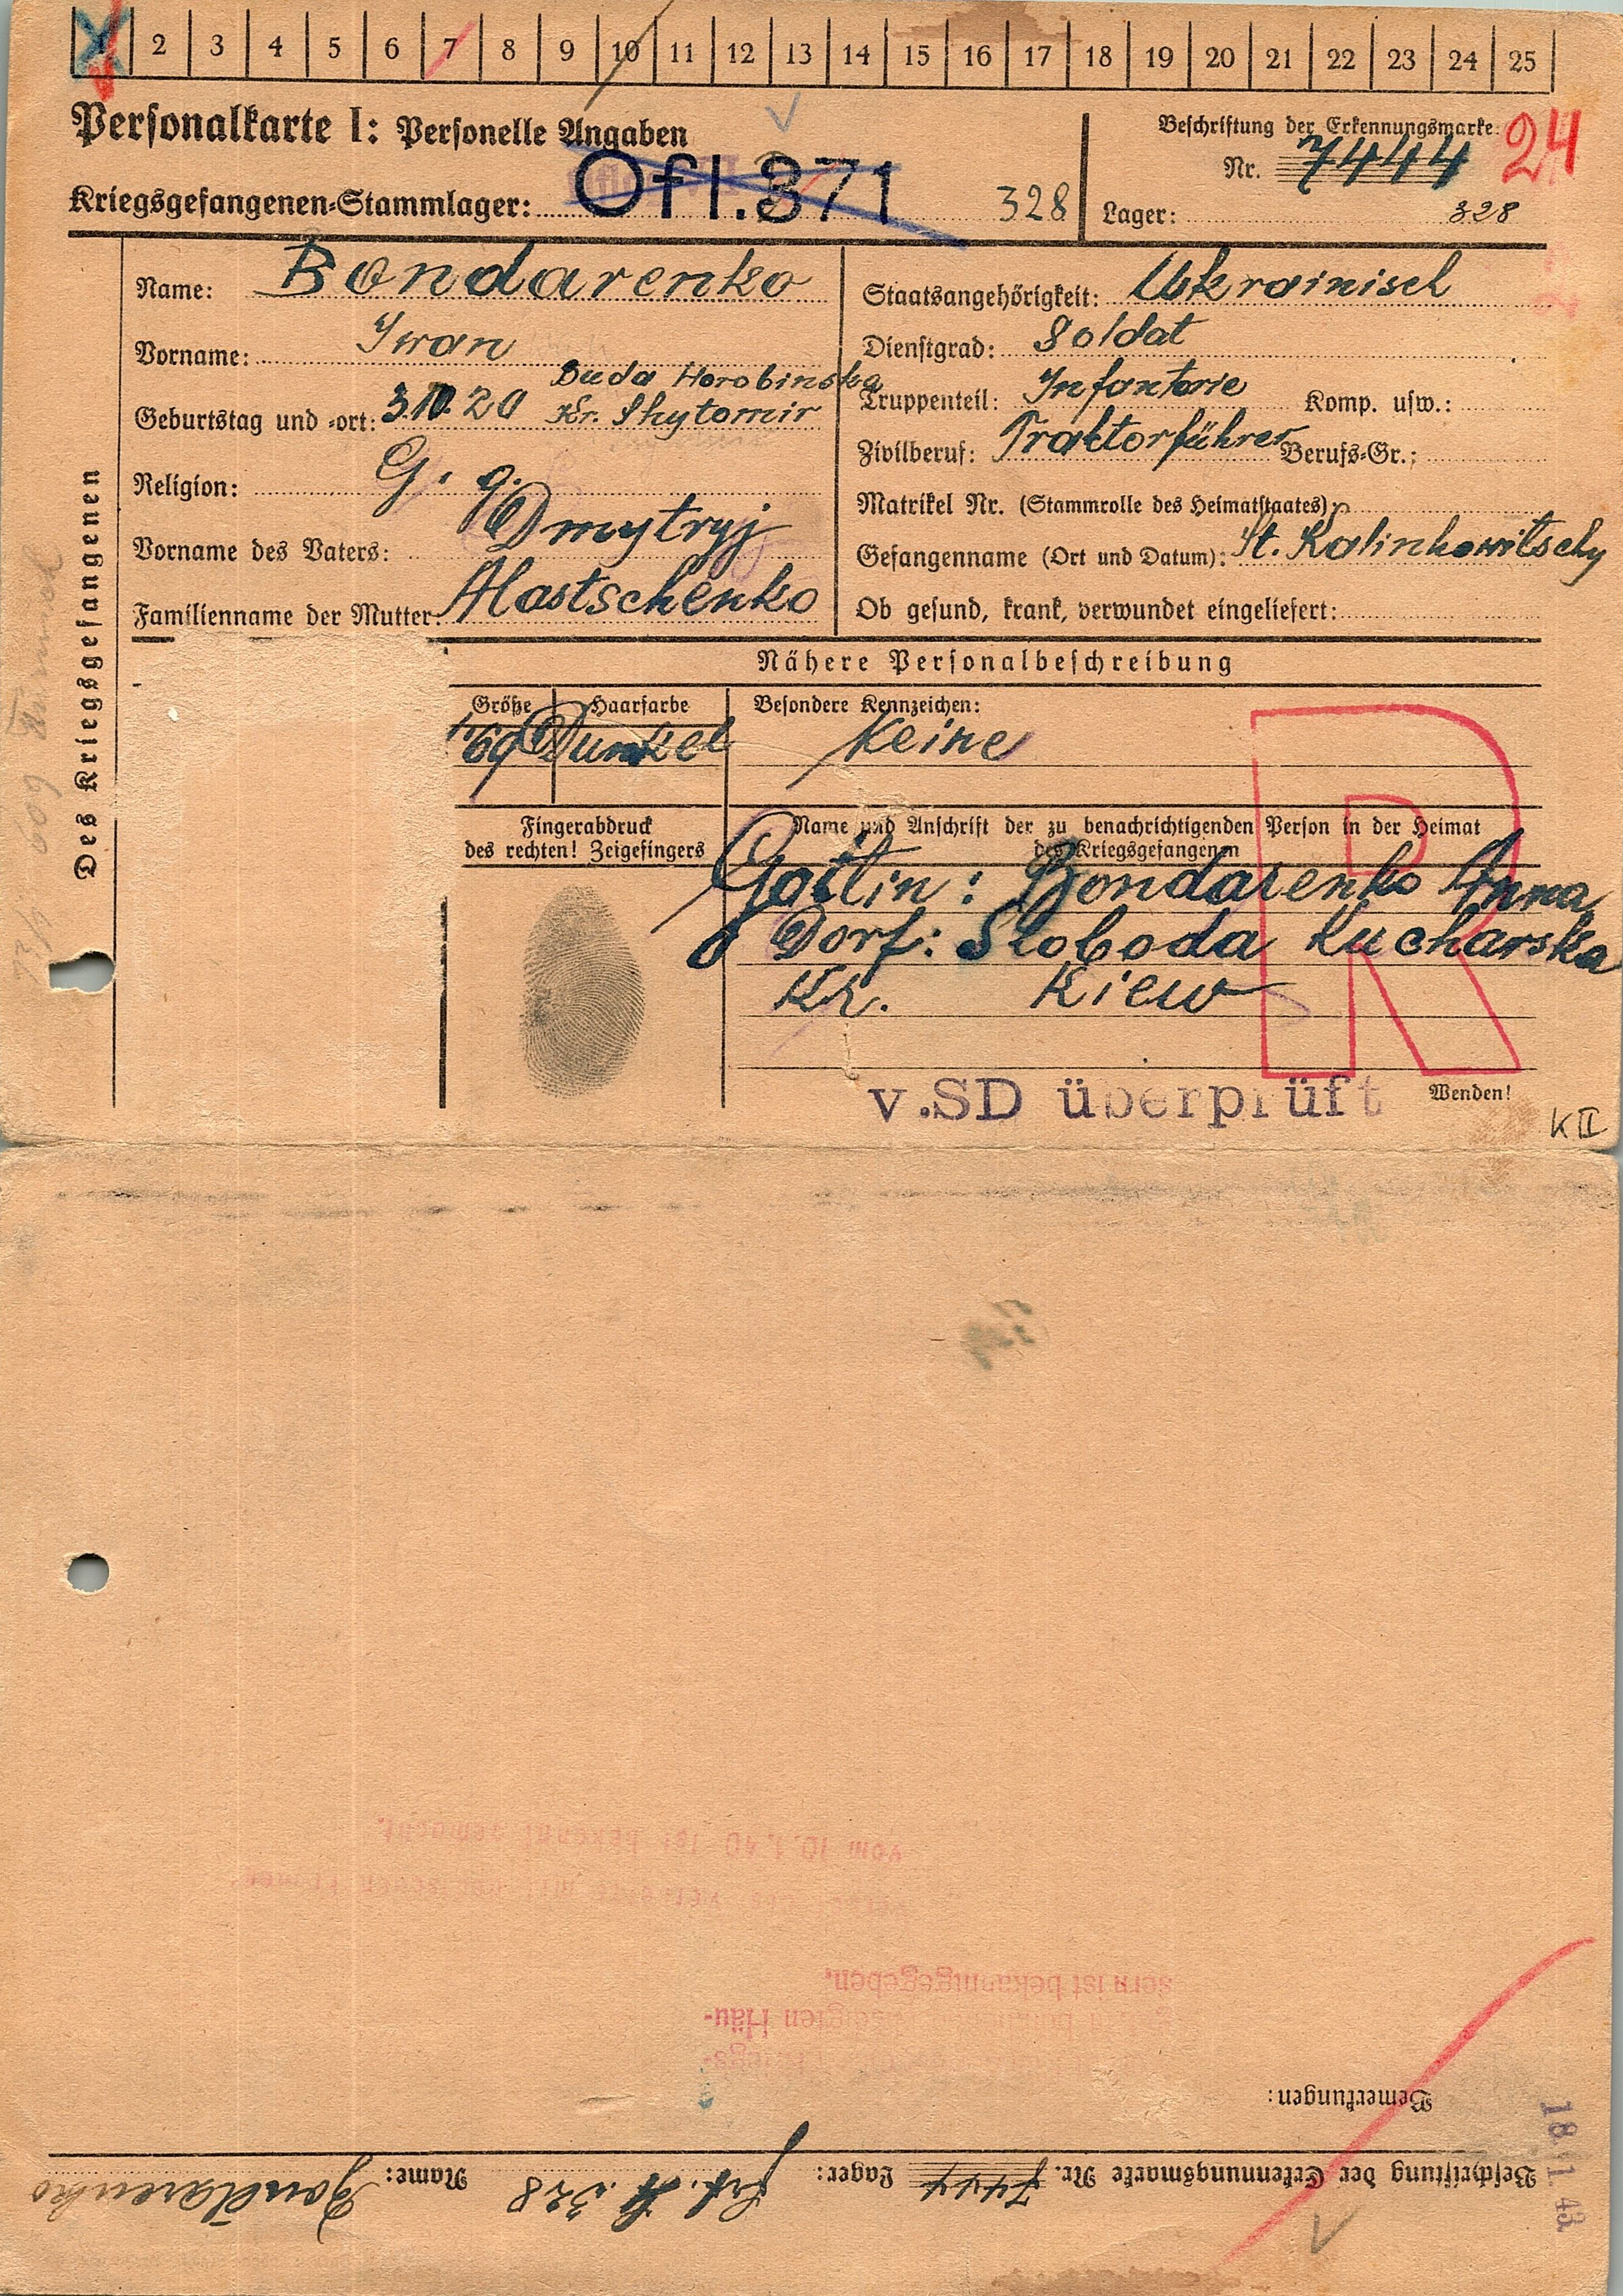 1 2 3 4 5 6 7 8 9 10 11 12 13 14 15 16 17 18 19 20 21 22 23 24 25
Personalkarte I: Personelle Angaben
Beschriftung der Erkennungsmarke: 24
Nr. 7444
Kriegsgefangenen-Stammlager: Ofl. 371 328
Lager: 328
Des Kriegsgefangenen
Name: Bondarenko
Staatsangehörigkeit: Ukrainisch
Vorname: Iwan
Dienstgrad: Soldat
Geburtstag und -ort: 3.10.20 Buda Horobinska
Kr. Shytomir
Truppenteil: Infanterie Komp. usw.:
Religion: G. g.
Zivilberuf: Traktorführer Berufs-Gr.:
Matrikel Nr. (Stammrolle des Heimatstaates):
Vorname des Vaters: Dmytryj
Gefangenname (Ort und Datum): St. Kalinkowitschy
Familienname der Mutter:
Ob gesund, krank, verwundet eingeliefert:
Nähere Personalbeschreibung
Größe Haarfarbe Besondere Kennzeichen:
1,69 Dunkel Keine
Fingerabdruck
des rechten! Zeigefingers
Name und Anschrift der zu benachrichtigenden Person in der Heimat
des Kriegsgefangenen
Gattin: Bondarenko Anna
Dorf: Sloboda Kucharska
Kr. Kiew
R
v.SD überprüft
Wenden!
K II
vom 10.1.40 ist bekannt gemacht.
sern ist bekanntgegeben.
Häu-
Bemerkungen:
18. 1. 43
Beschriftung der Erkennungsmarke Nr. 7444 Lager: 328 Name: Bondarenko